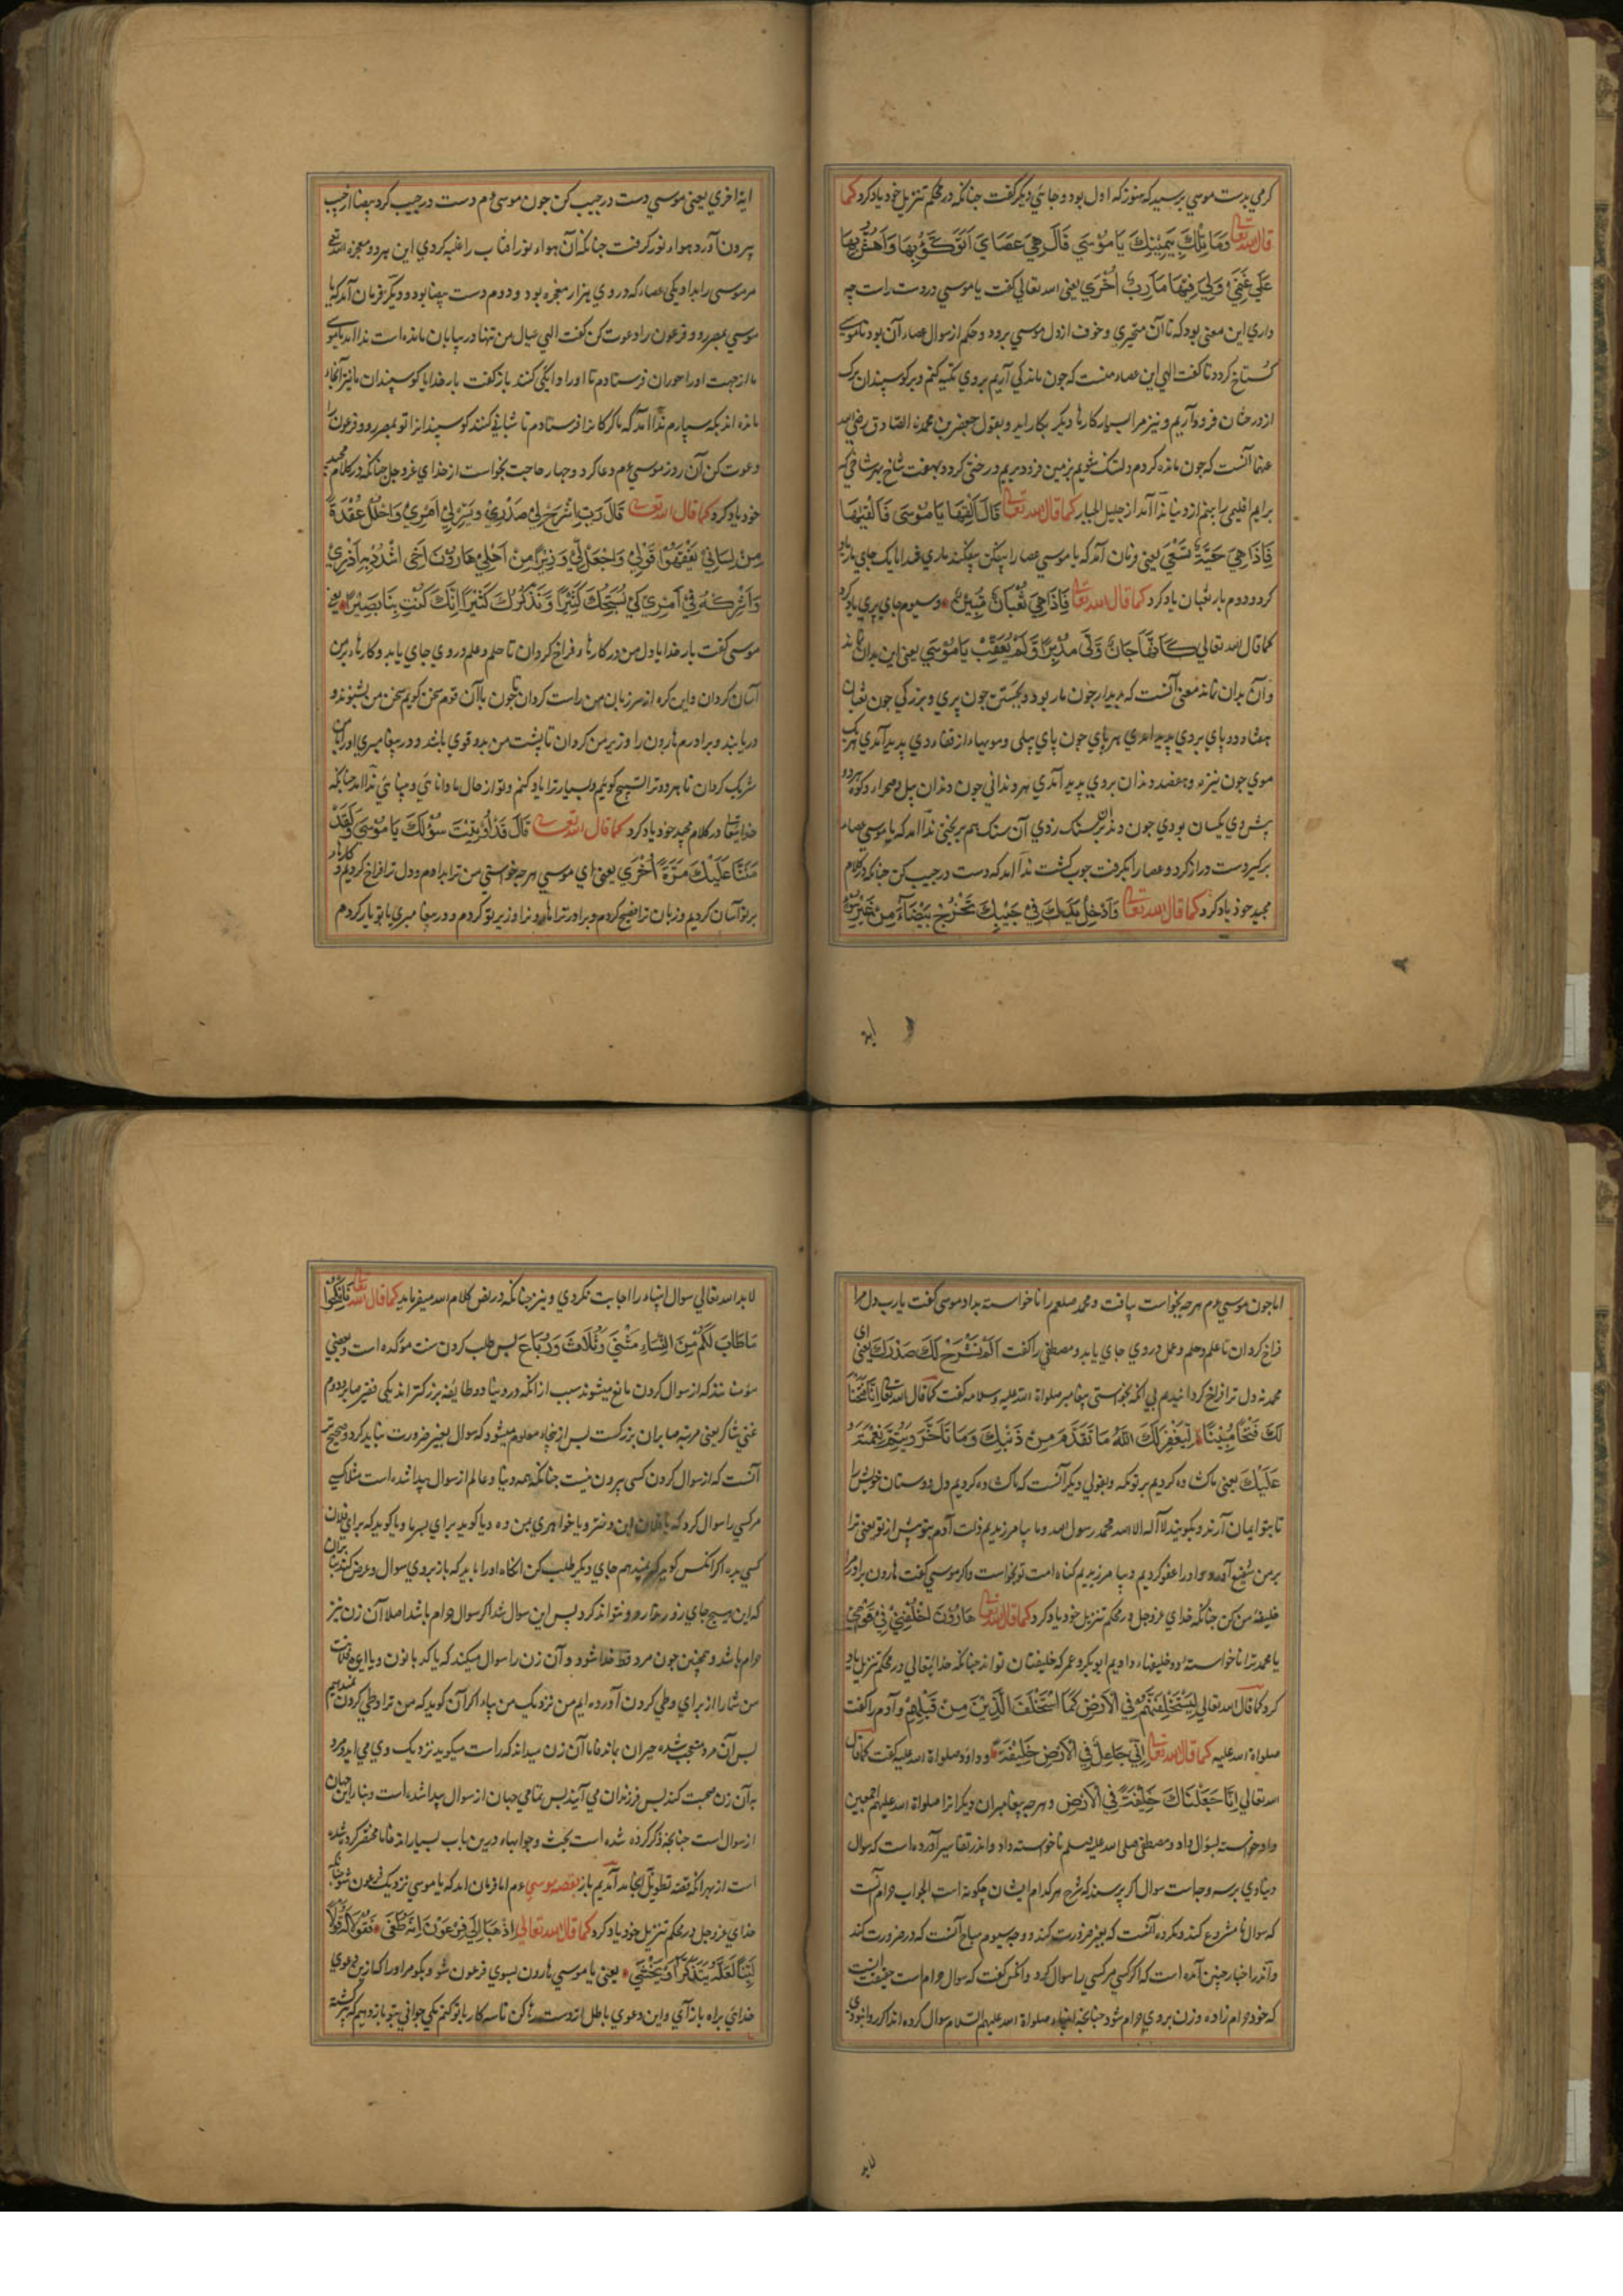 کرمی بدست موسی برسید که هنوز که اول بود و جای دیگر گفت جنانکه در محکم تنزیل خود یاد کرد کما
قال الله تعالی وَمَا تِلْكَ بِيَمِيْنِكَ يَا مُوْسَي قَالَ هِيَ عَصَايَ اَتَوَكَّؤُ بِهَا وَاَهُشُّ بِهَا
عَلَي غَنَمِيْ وَلِيَ فِيْهَا مَآرِبُ اُخْرَي یعنی الله تعالی گفت یا موسی در دست راست چه
داری این معنی بود که تا آن متحیری و خوف از دل موسی برود و حکم از سوال عصا آن بود تا موسی
گستاخ کردد تا گفت الهی این عصاء منست که جون ماندکی آریم بر وی تکیه کنم و بر کوسپندان برک
از درختان فرود آریم و نیز مرا بسیار کارها دیکر بکار اید و بقول جعفر بن محمدن الصادق رضی الله
عنهما آنست که جون مانده کردم و دلتنک شویم بزمین فرود بریم درختی کردد بهفت شاخ بهر شاخی که
برایم اقلیمی را بینم از دنیا ندا آمد از جلیل الجبار کما قال الله تعالی قَالَ اَلْقِهَا يَا مُوْسَي فَاَلْقَيْهَا
فَاِذَا هِيَ حَيَّةٌ تَسْعَي یعنی فرمان آمد که یا موسی عصا را بیفکن بیفکند باری خدا یک جای مار یاد
کرد و دوم بار ثعبان یاد کرد کما قال الله تعالی فَاِذَا هِيَ ثُعْبَانٌ مُّبِيْنٌ و سیوم جای پری یاد کرد
کما قال الله تعالی كَاَنَّهَا جَانٌّ وَلَّي مُدْبِرًا وَّلَمْ يُعَقِّبْ يَا مُوْسَي یعنی این بدان ماند
و آن بدان ماند معنی آنست که بدیدار جون مار بود و بجستن جون پری و بزرکی جون ثعبان
هفتاد و دو پای بر وی پدید امدی هر پای جون پای پیلی و مویها از قفاء وی پدید آمدی هر یک
موی جون نیزه و هفصد دندان بر وی پدید آمدی هر دندانی جون دندان پیل و صحرا و کوه هر دو
پیش وی یکسان بودی جون دندان بر سنک زدی آن سنک هم بریختی ندا امد که یا موسی عصا
برکیر دست دراز کرد و عصا را بکرفت جوب کشت ندا امد که دست در جیب کن جنانکه در کلام
مجید خود یاد کرد کما قال الله تعالی وَاَدْخِلْ يَدَكَ فِيْ جَيْبِكَ تَخْرُجْ بَيْضَآءَ مِنْ غَيْرِ سُوْءٍ
ایة
ایة اخری یعنی موسی دست در جیب کن جون موسی عم دست در جیب کرد بیضا از جیب
بیرون آورد هواء نور کرفت جنانکه آن هواء نور افتاب را غلبه کردی این هر دو معجزه الله تع
مر موسی را بداد یکی عصاء که در وی هزار معجزه بود و دوم دست بیضا بود و دیکر فرمان آمد که یا
موسی بمصر رو و فرعون را دعوت کن گفت الهی عیال من تنها در بیابان مانده است ندا امد یا موسی
ما از جهت او را حوران فرستادم تا او را دایکی کنند باز گفت بار خدایا کوسپندان ما نیز آنجا
مانده اند بکه سپارم ندا امد که ما کرکانرا فرستادم تا شبانی کنند کوسپندانرا تو بمصر رو و فرعون را
دعوت کن آن روز موسی عم دعا کرد و جهار حاجت بخواست از خدای عزوجل جنانکه در کلام مجید
خود یاد کرد کما قال الله تعالی قَالَ رَبِّ اشْرَحْ لِيْ صَدْرِيْ وَيَسِّرْ لِيْ اَمْرِيْ وَاحْلُلْ عُقْدَةً
مِنْ لِسَانِيْ يَفْقَهُوْا قَوْلِيْ وَاجْعَلْ لِّيْ وَزِيْرًا مِنْ اَهْلِيْ هَارُوْنَ اَخِي اشْدُدْ بِهِ اَزْرِيْ
وَاَشْرِكْهُ فِيْ اَمْرِيْ كَيْ نُسَبِّحَكَ كَثِيْرًا وَّنَذْكُرَكَ كَثِيْرًا اِنَّكَ كُنْتَ بِنَا بَصِيْرًا یعنی
موسی گفت بار خدایا دل من در کارها فراخ کردان تا حلم و علم در وی جای یابد و کارها بر من
آسان کردان و این کره از سر زبان من راست کردان تا جون با آن قوم سخن کویم سخن من بشنوند و
دریابند و برادرم هارون را وزیر من کردان تا پشت من بدو قوی باشد و در پیغامبری او را با من
شریک کردان تا هر دو ترا تسبیح کویم و بسیار ترا یاد کنم و تو از حال ما دانائی و بینائی ندا امد جنانکه
خدایتعالی در کلام مجید خود یاد کرد کما قال الله تعالی قَالَ قَدْ اُوْتِيْتَ سُؤْلَكَ يَا مُوْسَي وَلَقَدْ
مَنَنَّا عَلَيْكَ مَرَّةً اُخْرَي یعنی ای موسی هر جه خواستی من ترا بدادم و دل ترا فراخ کردیم و کارها
بر تو آسان کردیم و زبان ترا فصیح کردم و برادر ترا هارونرا وزیر تو کردم و در پیغامبری با تو یار کردم
اما جون موسی عم هر جه بخواست بیافت و محمد صلعم را ناخواسته بداد موسی گفت یا رب دل مرا
فراخ کردان تا علم و حلم و عمل در وی جای یابد و مصطفی را گفت اَلَمْ نَشْرَحْ لَكَ صَدْرَكَ یعنی ای
محمد نه دل ترا فراخ کردانیدیم بی انکه بخواستی پیغامبر صلواة الله علیه و سلامه گفت کما قال الله تعالی اِنَّا فَتَحْنَا
لَكَ فَتْحًا مُّبِيْنًا لِيَغْفِرَ لَكَ اللّٰهُ مَا تَقَدَّمَ مِنْ ذَنْبِكَ وَمَا تَاَخَّرَ وَيُتِمَّ نِعْمَتَهُ
عَلَيْكَ یعنی ما کشاده کردیم بر تو مکه و بقولی دیکر آنست که ما کشاده کردیم دل دوستان خویش را
تا بتو ایمان آرند و بکویند لا اله الا الله محمد رسول الله و ما بیامرزیدیم ذلت آدم بتو پیش از تو یعنی ترا
بر من شفیع آورد و او را عفو کردیم و بیامرزیدیم کناه امت تو بخواست و اکر موسی گفت هارون برادر مرا
خلیفه من کن جنانکه خدای عزوجل در محکم تنزیل خود یاد کرد کما قال الله تعالی هَارُوْنَ اخْلُفْنِيْ فِيْ قَوْمِيْ
یا محمد ترا ناخواسته دو خلیفه دادیم ابوبکر و عمر که خلیفتان تواند جنانکه خدایتعالی در محکم تنزیل یاد
کرد کما قال الله تعالی لَيَسْتَخْلِفَنَّهُمْ فِي الْاَرْضِ كَمَا اسْتَخْلَفَ الَّذِيْنَ مِنْ قَبْلِهِمْ و آدم را گفت
صلواة الله علیه کما قال الله تعالی اِنِّيْ جَاعِلٌ فِي الْاَرْضِ خَلِيْفَةً و داود صلواة الله علیه گفت کما قال
الله تعالی اِنَّا جَعَلْنَاكَ خَلِيْفَةً فِي الْاَرْضِ و هر جه پیغامبران دیکر انرا صلواة الله علیهم اجمعین
داد خواسته بسؤال داد و مصطفی صلی الله علیه وسلم ناخواسته داد و اندر تفاسیر آورده است که سوال
دنیاوی بر سه وجه است سوال اکر پرسند که شرح هر کدام ایشان چکونه است الجواب حرام آنست
که سوال نامشروع کند و مکروه آنست که بغیر ضرورت کند و وجه سیوم مباح آنست که در ضرورت کند
و آندر اخبار چنین آمده است که اکر کسی مر کسی را سوال کرد و انکس گفت که سوال حرام است حقیقت اینست
که خود حرام زاده و زن بر وی حرام شود جنانچه انبیاء صلواة الله علیهم السلام سوال کرده اند اکر روا نبودی
لابد
لابد الله تعالی سوال انبیاء را اجابت نکردی و نیز جنانکه در نص کلام الله میفرماید کما قال الله تعالی فَانْكِحُوْا
مَا طَابَ لَكُمْ مِّنَ النِّسَآءِ مَثْنَي وَثُلَاثَ وَرُبَاعَ بس طلب کردن سنت موکده است و بعضی
مؤمنانند که از سوال کردن مانع میشوند سبب از انکه در دنیا دو طایفه بزرکتر اند یکی فقیر صابر و دوم
غنی شاکر یعنی مرتبه صابران بزرکست بس از پنجا معلوم میشود که سوال بغیر ضرورت نباید کرد و صحیح تر
آنست که از سوال کردن کسی بیرون نیست جنانکه همه دنیا و عالم از سوال پیدا شده است مثلا یک
مر کسی را سوال کرد که یا فلان این دختر و یا خواهری بمن ده و یا کوید برای پسر ما و یا کوید که برای فلان
کسی بده اکر انکس کوید که نمیدهم جای دیکر طلب کن انکاه او را باید که باز بروی سوال و عرض کند تا بدان
که این هیچ جای زور رفتار و نتواند کرد پس این سوال شد اکر سوال حرام باشد اصلا آن زن نیز
حرام باشد و همچنین جون مرد قد خدا شود و آن زن را سوال میکند که یا کدبانون و یا ای فلانه
من شما را از برای وطی کردن آورده ایم من نزدیک من بیا اکر آن کوید که من ترا وطی کردن نمیدهم
بس آن مرد متعجب شده حیران بماند فاما آن زن میداند که راست میکوید نزدیک وی می اید و مرد
به آن زن صحبت کند بس فرزندان می آیند بس تمامی جهان از سوال پیدا شده است و بنا براین جهان
از سوال است جنانچه ذکر کرده شده است بحث و جوابها درین باب بسیار اند فاما مختصر کرده شده
است از بهر انکه قصه تطویل انجامد آمدیم باز بقصه موسی عم اما فرمان امد که یا موسی نزدیک فرعون شو جنانکه
خدای عزوجل در محکم تنزیل خود یاد کرد کما قال الله تعالی اِذْهَبَا اِلَي فِرْعَوْنَ اِنَّهُ طَغَي فَقُوْلَا لَهُ قَوْلًا
لَيِّنًا لَعَلَّهُ يَتَذَكَّرُ اَوْ يَخْشَي یعنی یا موسی هارون بسوی فرعون شو و بکو مر او را که ازین دعوی
خدائی براه باز آی و این دعوی باطل از دست رها کن تا سه کار با تو کنم یکی جوانی بتو باز دهیم که برکشته